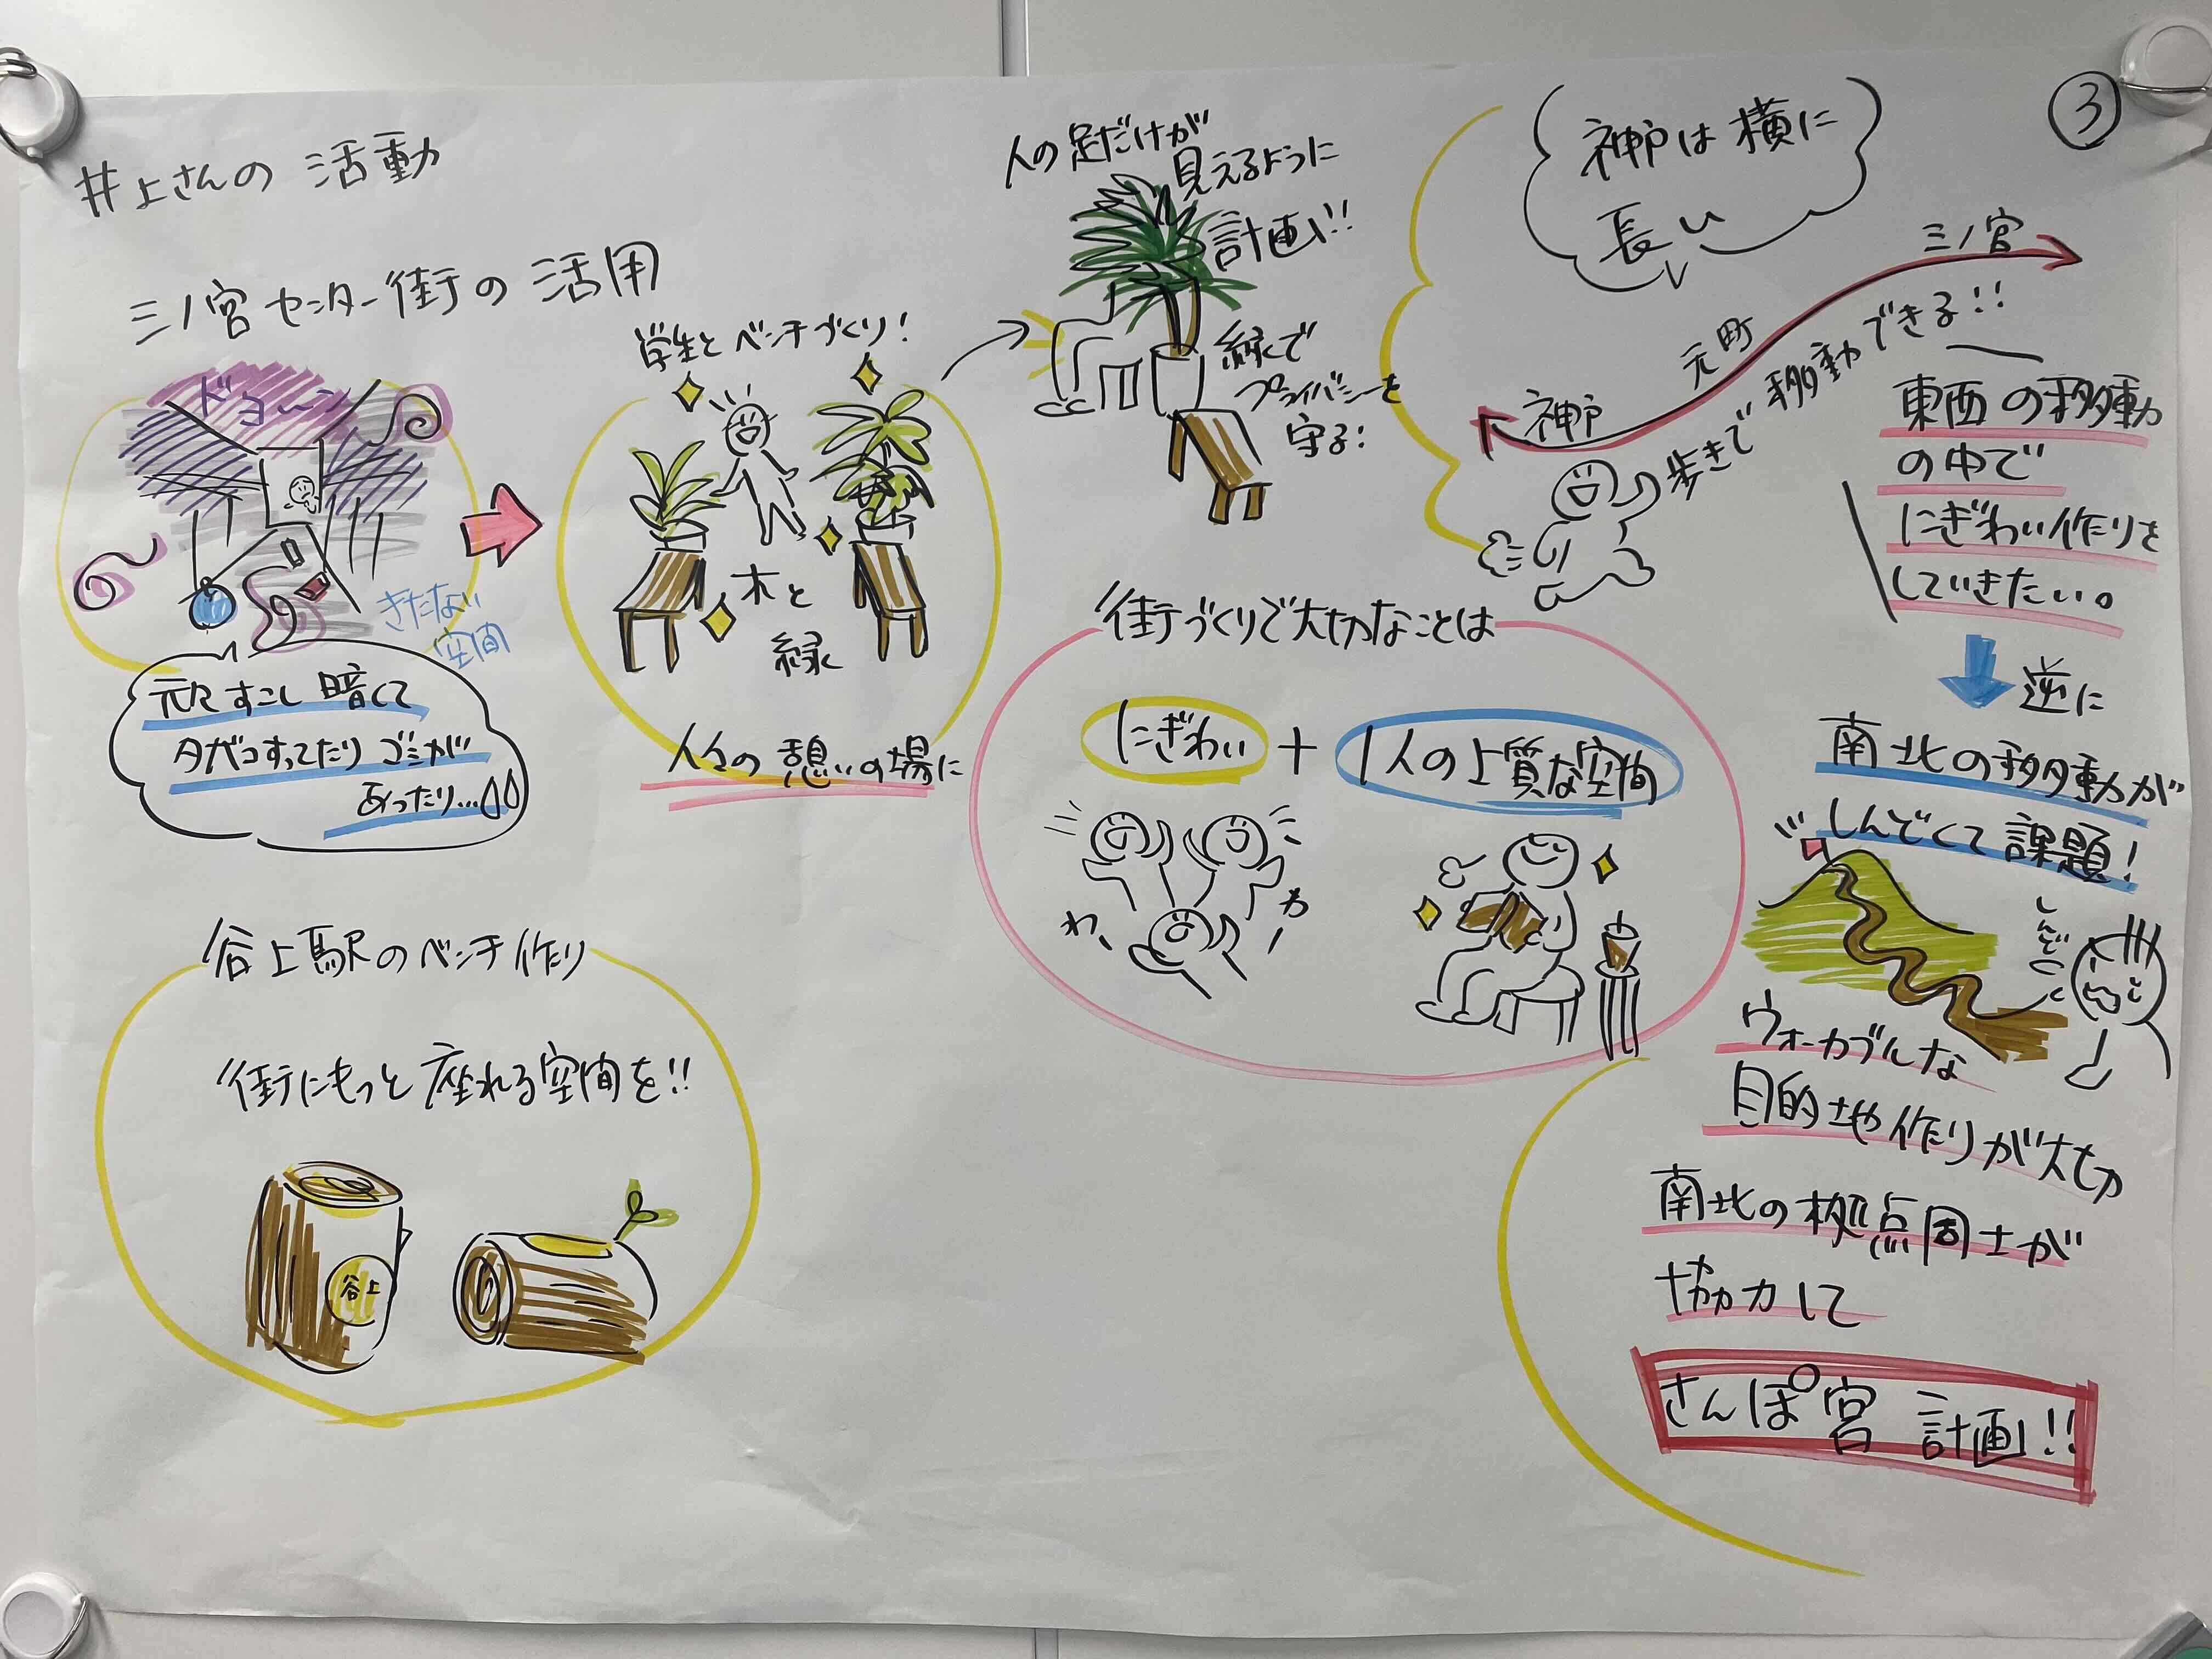 ③
井上さんの 活動
三ノ宮センター街の 活用
ドヨーン
きたない
空間
元々すこし 暗くて
タバコすってたり ゴミが
あったり…
学生と ベンチづくり!
木と
緑
人々の 憩いの場に
人の足だけが
見えるように
計画!!
緑で
プライバシーを
守る!
神戸は 横に
長い
三ノ宮
元町
神戸
歩きで 移動できる!!
東西の移動
の中で
にぎわい作りを
していきたい。
逆に
南北の移動が
しんどくて 課題!
しんど〜
ウォーカブルな
目的地作りが大切
南北の拠点同士が
協力して
さんぽ宮 計画!!
街づくりで大切なことは
にぎわい + 1人の上質な空間
わー
わー
谷上駅のベンチ作り
街にもっと座れる空間を!!
谷上